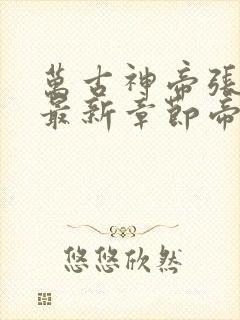 萬古神帝張
最新章節帝
悠悠欣然